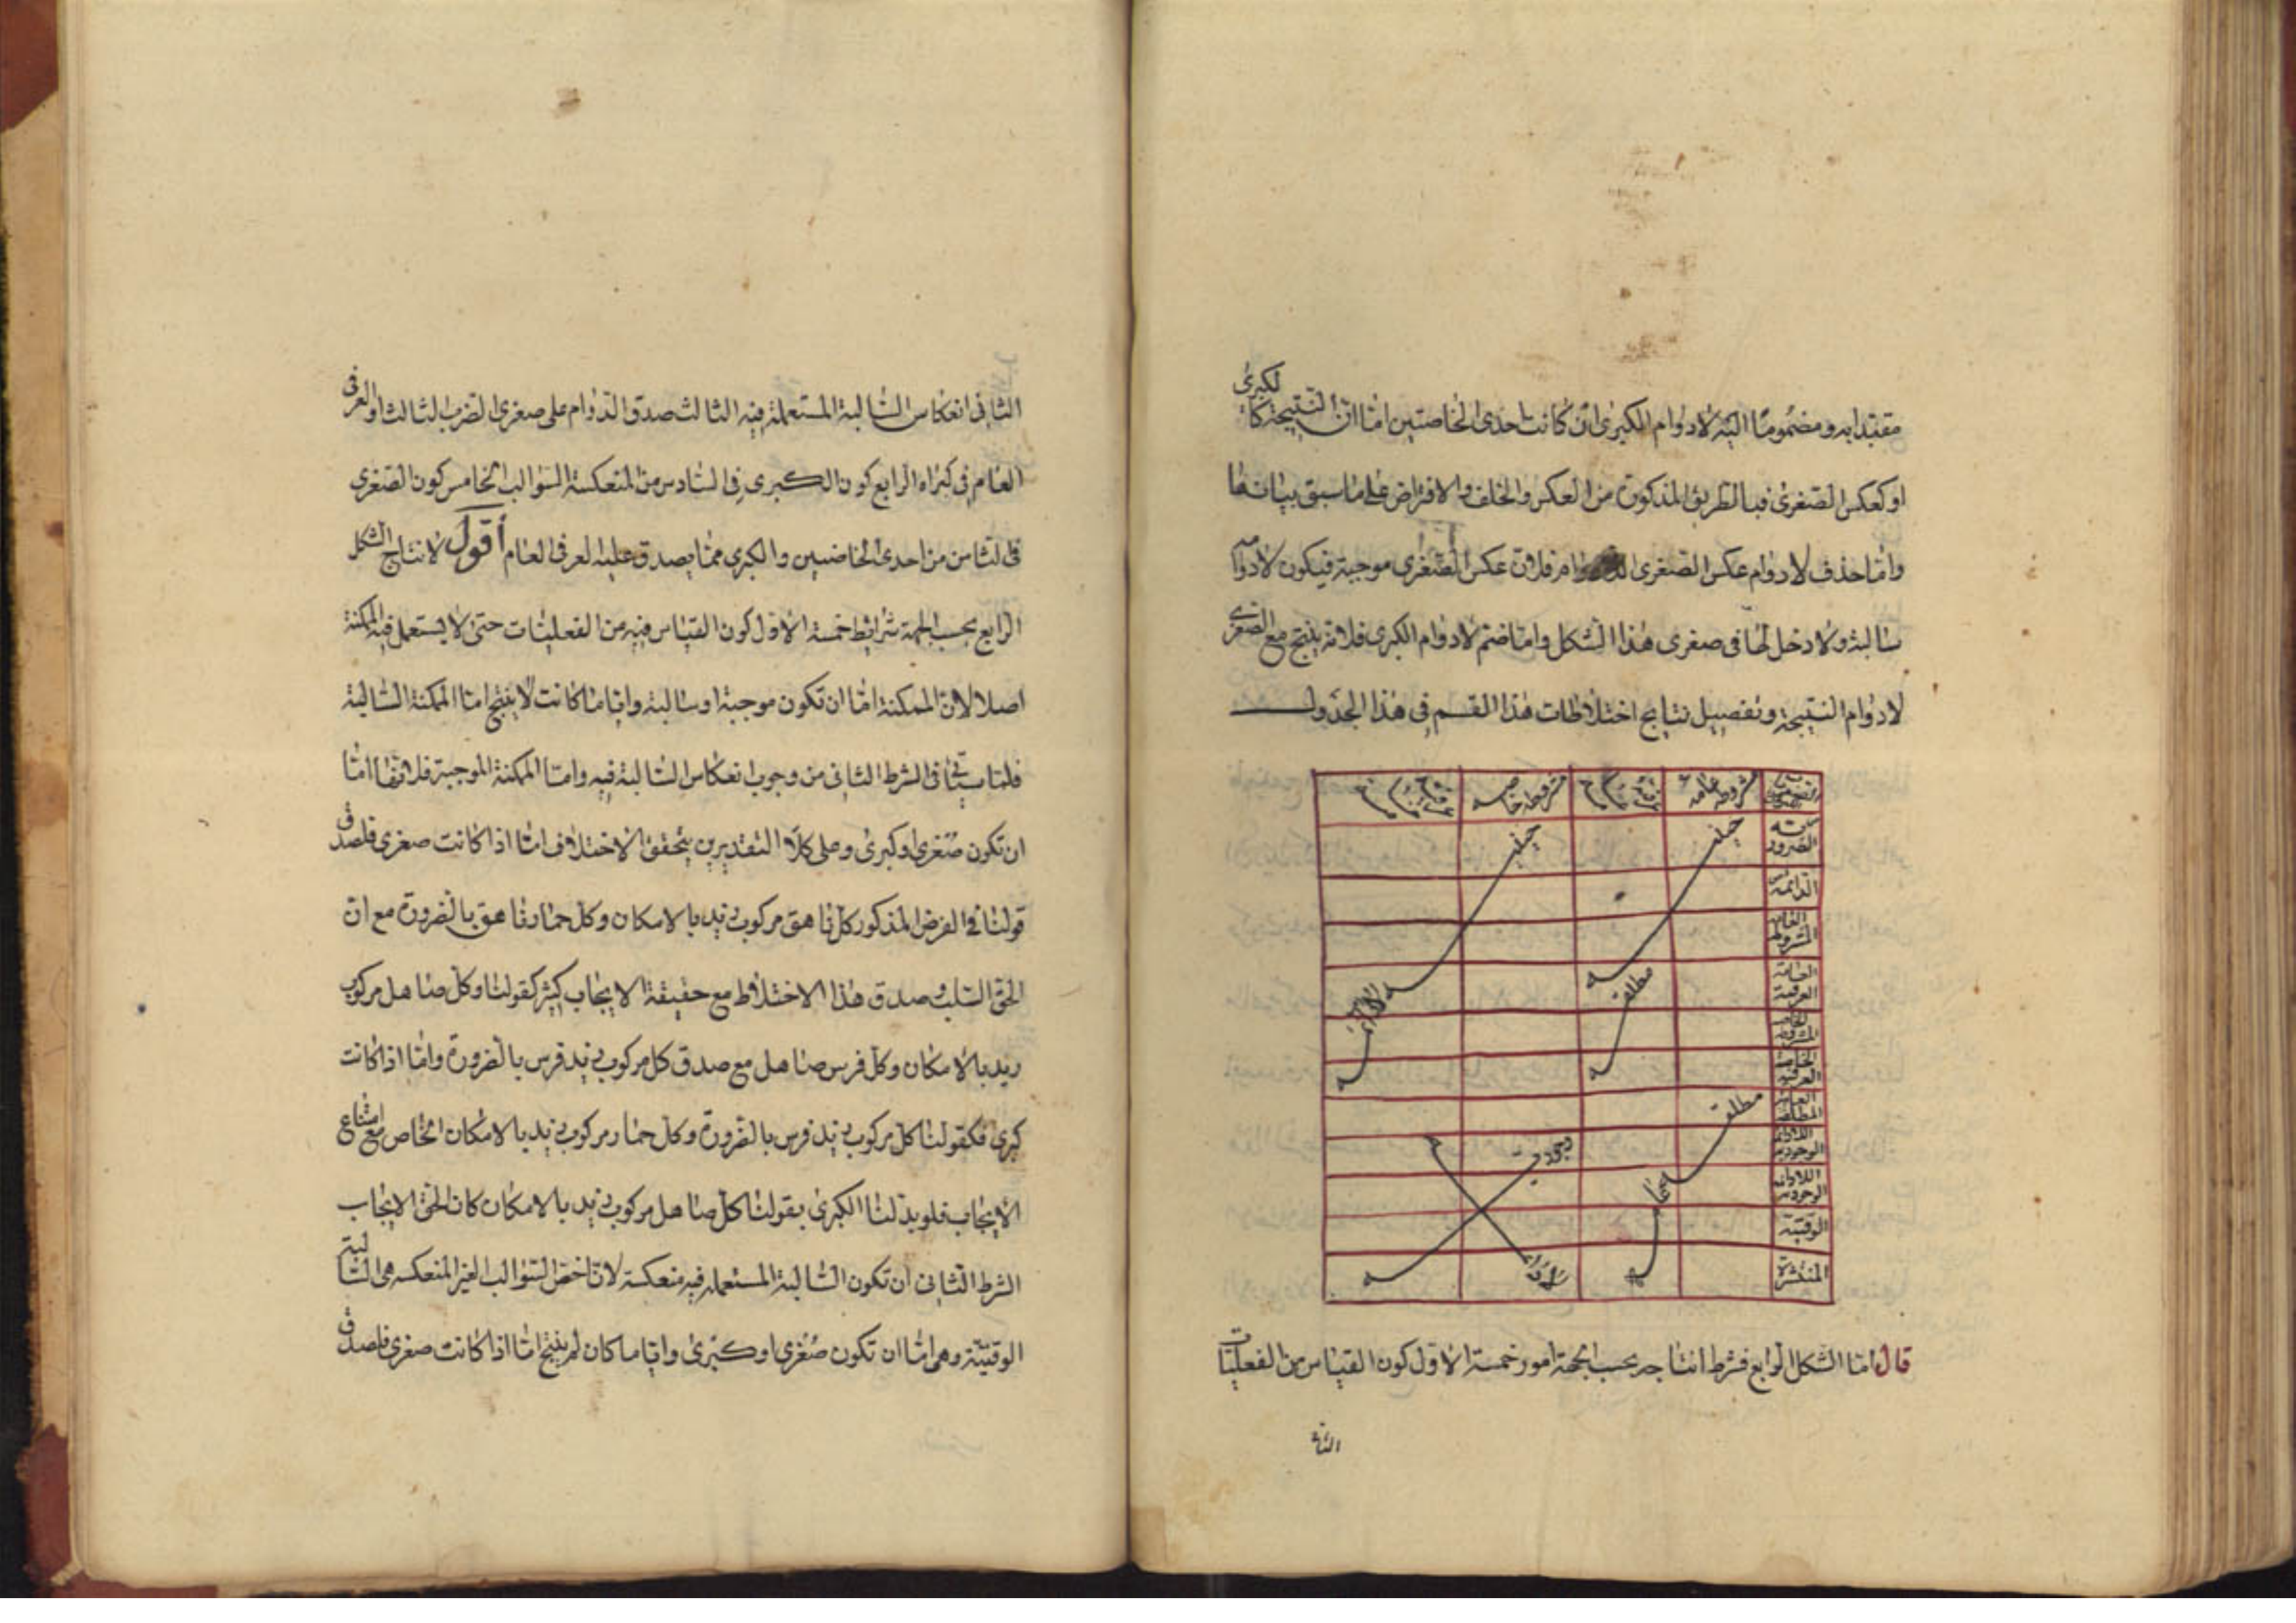 مقيدا به ومضموما اليه لادوام الكبرى ان كانت احدى الخاصتين اما ان النتيجة كا لكبرى
او كعكس الصغرى فبالطريق المذكورة من العكس والخلف والافتراض على ما سبق بيانها
واما حذف لادوام عكس الصغرى فلان عكس الصغرى موجبة فيكون لادوامه
سالبة ولا دخل لها فى صغرى هذا الشكل واما ضم لادوام الكبرى فلانه ينتج مع الصغرى
لادوام النتيجة وتفصيل نتايج اختلاطات هذا القسم فى هذا الجدول
مشروطه عامه مشروطه خاصه
الضرورية حينية حينية
الدائمة
المشروطة العامة
العرفية العامة مطلقة
المشروطة الخاصة
العرفية الخاصة
المطلقة العامة مطلقة
الوجودية اللادائمة وجودية
الوجودية
الوقتية
المنتشرة
قال اما الشكل الرابع فشرط انتاجه بحسب الجهة امور خمسة الاول كون القياس من الفعليات
الثانى
الثانى انعكاس السالبة المستعملة فيه الثالث صدق الدوام على صغرى الضرب الثالث او العرفى
العام فى كبراه الرابع كون الكبرى فى السادس من المنعكسة السوالب الخامس كون الصغرى
فى الثامن من احدى الخاصتين والكبرى مما يصدق عليه العرفى العام أقول لانتاج الشكل
الرابع بحسب الجهة شرائط خمسة الاول كون القياس فيه من الفعليات حتى لا يستعمل فيه الممكنة
اصلا لان الممكنة اما ان تكون موجبة او سالبة وايا ما كانت لا ينتج اما الممكنة السالبة
فلما سيجئ فى الشرط الثانى من وجوب انعكاس السالبة فيه واما الممكنة الموجبة فلانها اما
ان تكون صغرى او كبرى وعلى كلا التقديرين يتحقق الاختلاف اما اذا كانت صغرى فلصدق
قولنا فى الفرض المذكور كل ناهق مركوب زيد بالامكان وكل حمار ناهق بالضرورة مع ان
الحق السلب وصدق هذا الاختلاط مع حقيقة الايجاب كثير كقولنا وكل صاهل مركوب
زيد بالامكان وكل فرس صاهل مع صدق كل مركوب زيد فرس بالضرورة واما اذا كانت
كبرى فكقولنا كل مركوب زيد فرس بالضرورة وكل حمار مركوب زيد بالامكان الخاص مع امتناع
الايجاب فلو بدلنا الكبرى بقولنا كل صاهل مركوب زيد بالامكان كان الحق الايجاب
الشرط الثانى ان تكون السالبة المستعمله فيه منعكسة لان اخص السوالب الغير المنعكسه هى السالبة
الوقتية وهى اما ان تكون صغرى او كبرى وايا ما كان لم ينتج اما اذا كانت صغرى فلصدق